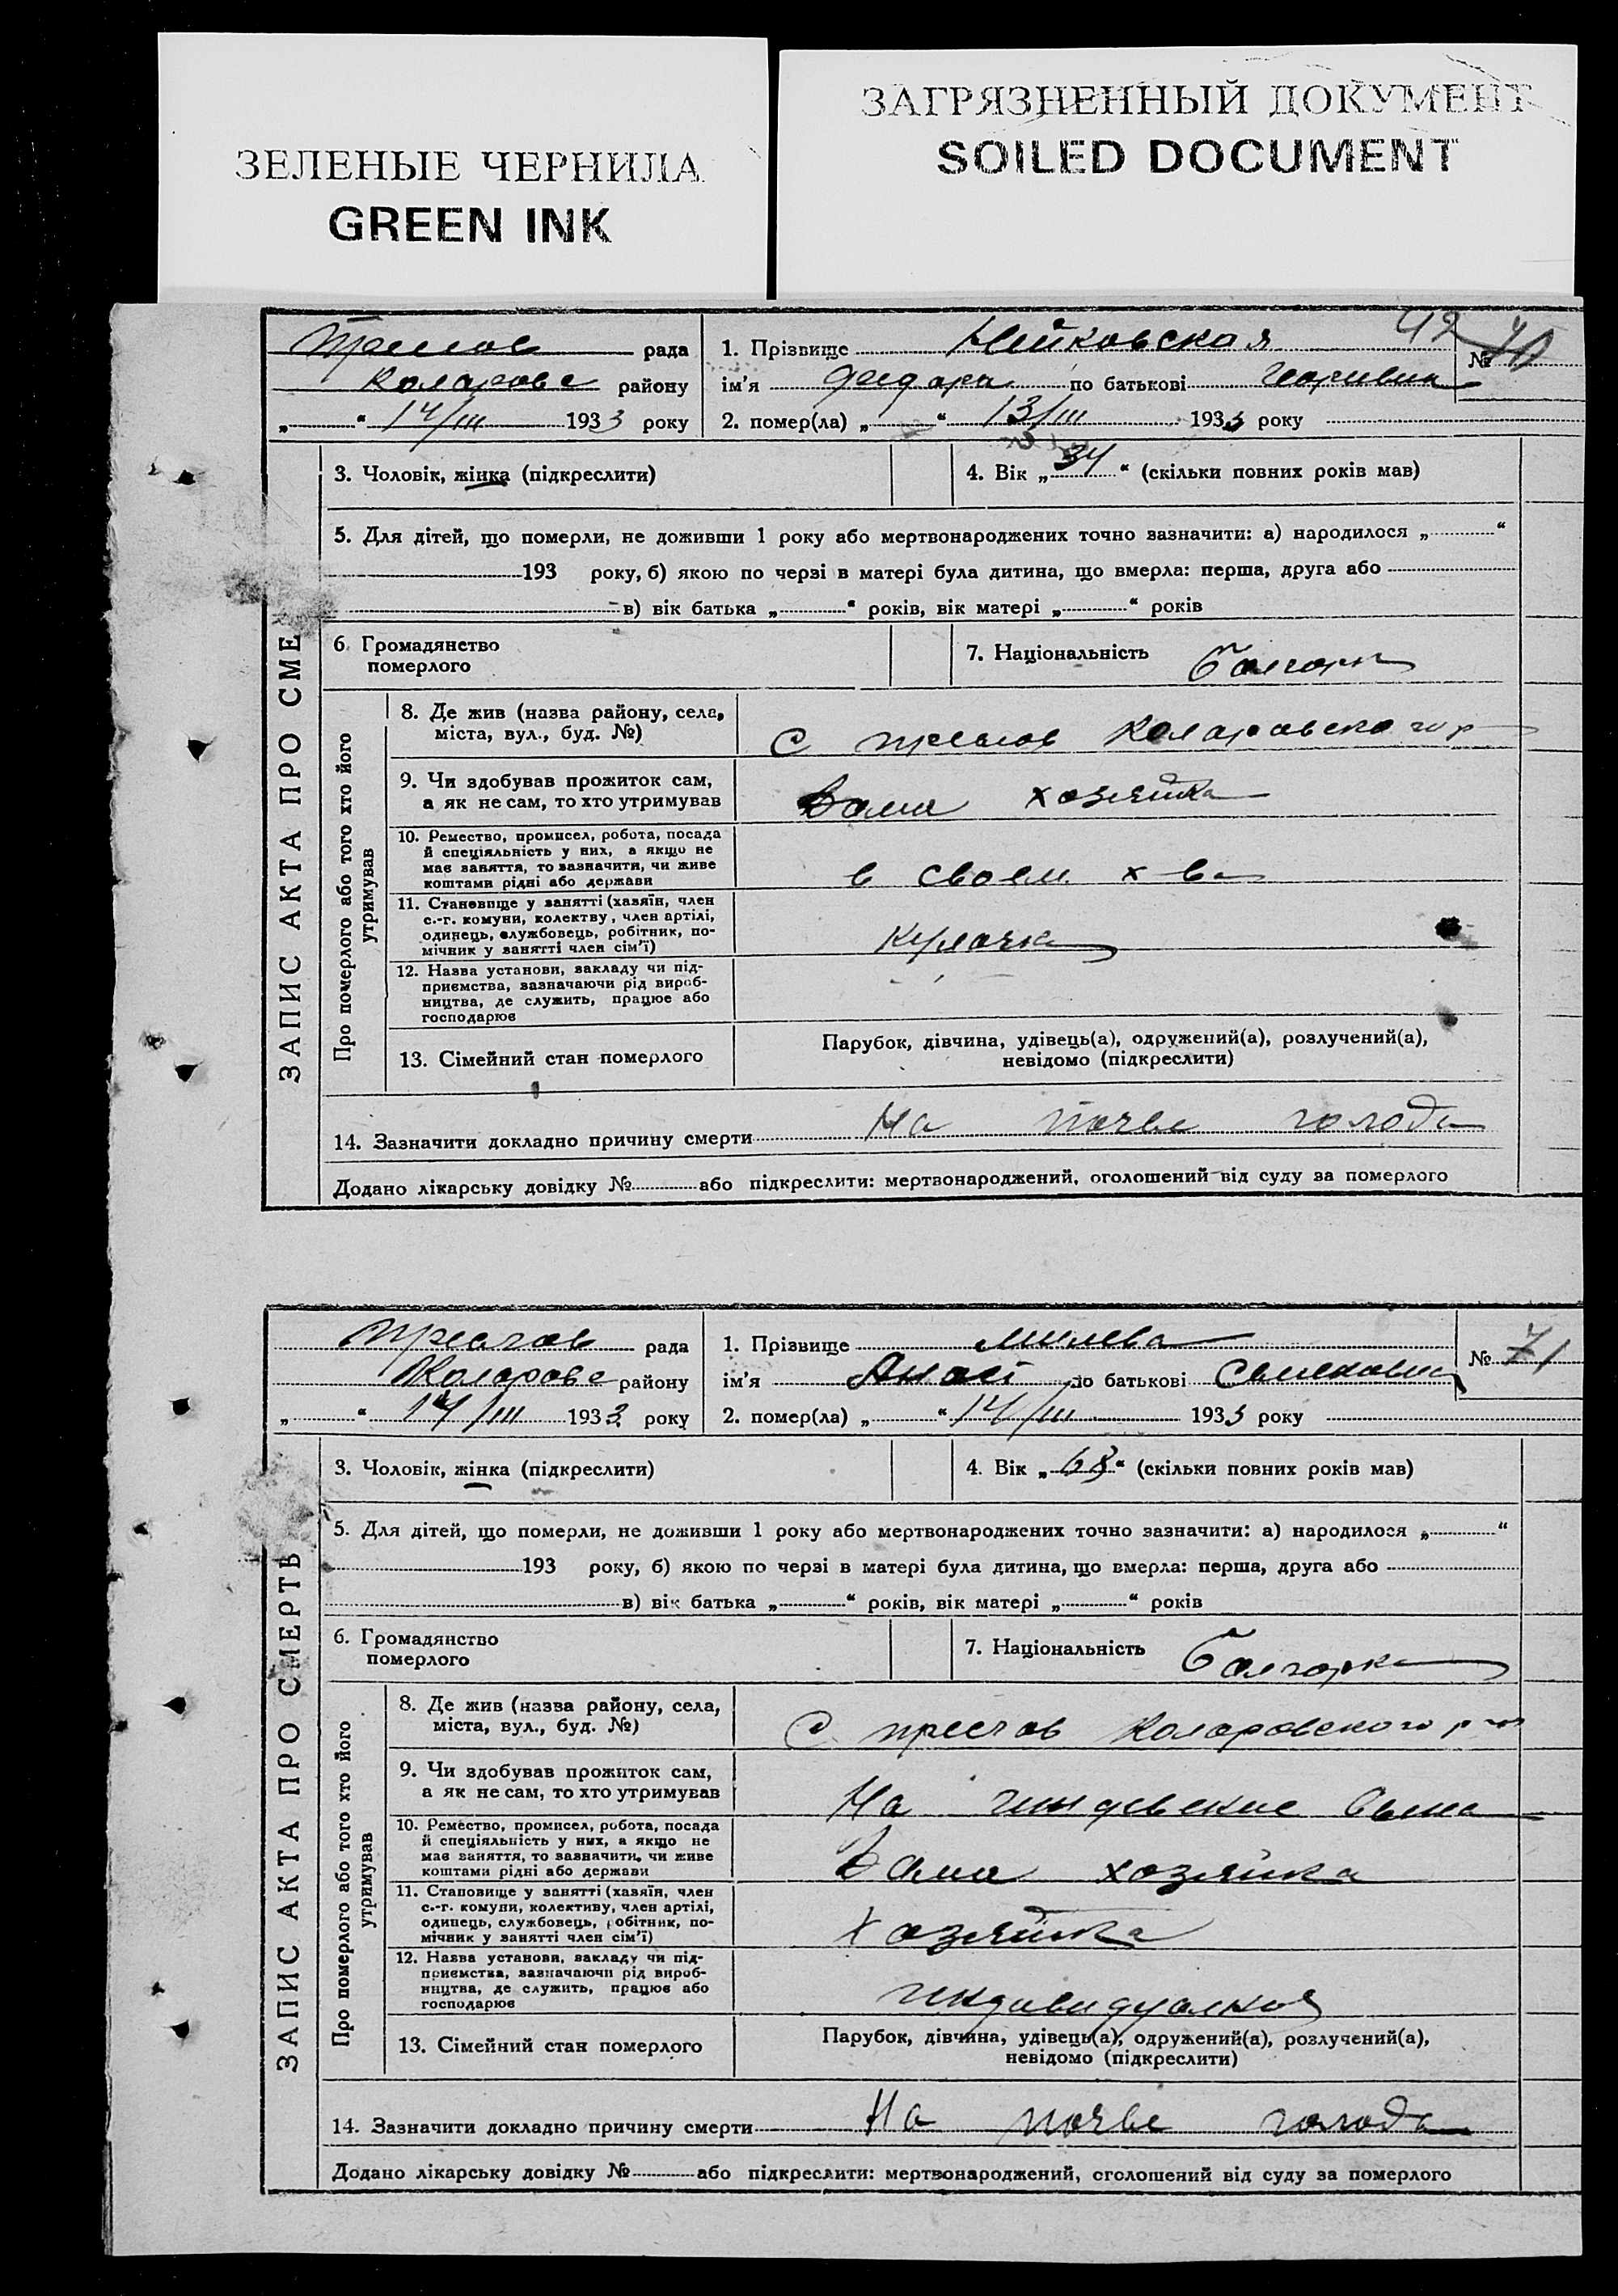 ЗЕЛЕНЫЕ ЧЕРНИЛА
GREEN INK
ЗАГРЯЗНЕННЫЙ ДОКУМЕНТ
SOILED DOCUMENT
ЗАПИС АКТА ПРО СМЕ
Преслов рада
Коларовс району
„ “ 14/III 1933 року
1. Прізвище
№ 70
ім'я по батькові
2. помер(ла) „ “ 13/III 1933 року
3. Чоловік, жінка (підкреслити)
4. Вік „34“ (скільки повних років мав)
5. Для дітей, що померли, не доживши 1 року або мертвонароджених точно зазначити: а) народилося „ “
193 року, б) якою по черзі в матері була дитина, що вмерла: перша, друга або
в) вік батька „ “ років, вік матері „ “ років
6. Громадянство
померлого
7. Національність Болгарк
Про померлого або того хто його
утримував
8. Де жив (назва району, села,
міста, вул., буд. №)
с преслов Коларовского р
9. Чи здобував прожиток сам,
а як не сам, то хто утримував
Дома хозяйка
10. Ремество, промисел, робота, посада
й спеціяльність у них, а якщо не
має заняття, то зазначити, чи живе
коштами рідні або держави
в своем х-ва
11. Становище у занятті (хазяїн, член
с.-г. комуни, колектву, член артілі,
одинець, службовець, робітник, по-
мічник у занятті член сім'ї)
Кулачка
12. Назва установи, закладу чи під-
приємства, зазначаючи рід вироб-
ництва, де служить, працює або
господарює
13. Сімейний стан померлого
Парубок, дівчина, удівець(а), одружений(а), розлучений(а),
невідомо (підкреслити)
14. Зазначити докладно причину смерти На почве голода
Додано лікарську довідку № або підкреслити: мертвонароджений, оголошений від суду за померлого
ЗАПИС АКТА ПРО СМЕРТЬ
Преслов рада
Коларовс району
„ “ 14/III 1933 року
1. Прізвище Милева
№ 71
ім'я Анаст по батькові
2. помер(ла) „ “ 14/III 1933 року
3. Чоловік, жінка (підкреслити)
4. Вік „68“ (скільки повних років мав)
5. Для дітей, що померли, не доживши 1 року або мертвонароджених точно зазначити: а) народилося „ “
193 року, б) якою по черзі в матері була дитина, що вмерла: перша, друга або
в) вік батька „ “ років, вік матері „ “ років
6. Громадянство
померлого
7. Національність Болгарка
Про померлого або того хто його
утримував
8. Де жив (назва району, села,
міста, вул., буд. №)
С преслов Коларовского р-на
9. Чи здобував прожиток сам,
а як не сам, то хто утримував
На иждевение сына
10. Ремество, промисел, робота, посада
й спеціяльність у них, а якщо не
має заняття, то зазначити, чи живе
коштами рідні або держави
Дома хозяйка
11. Становище у занятті (хазяїн, член
с.-г. комуни, колективу, член артілі,
одинець, службовець, робітник, по-
мічник у занятті член сім'ї)
хозяйка
12. Назва установи, закладу чи під-
приємства, зазначаючи рід вироб-
ництва, де служить, працює або
господарює
индивидуалноя
13. Сімейний стан померлого
Парубок, дівчина, удівець(а), одружений(а), розлучений(а),
невідомо (підкреслити)
14. Зазначити докладно причину смерти На почве голода
Додано лікарську довідку № або підкреслити: мертвонароджений, оголошений від суду за померлого